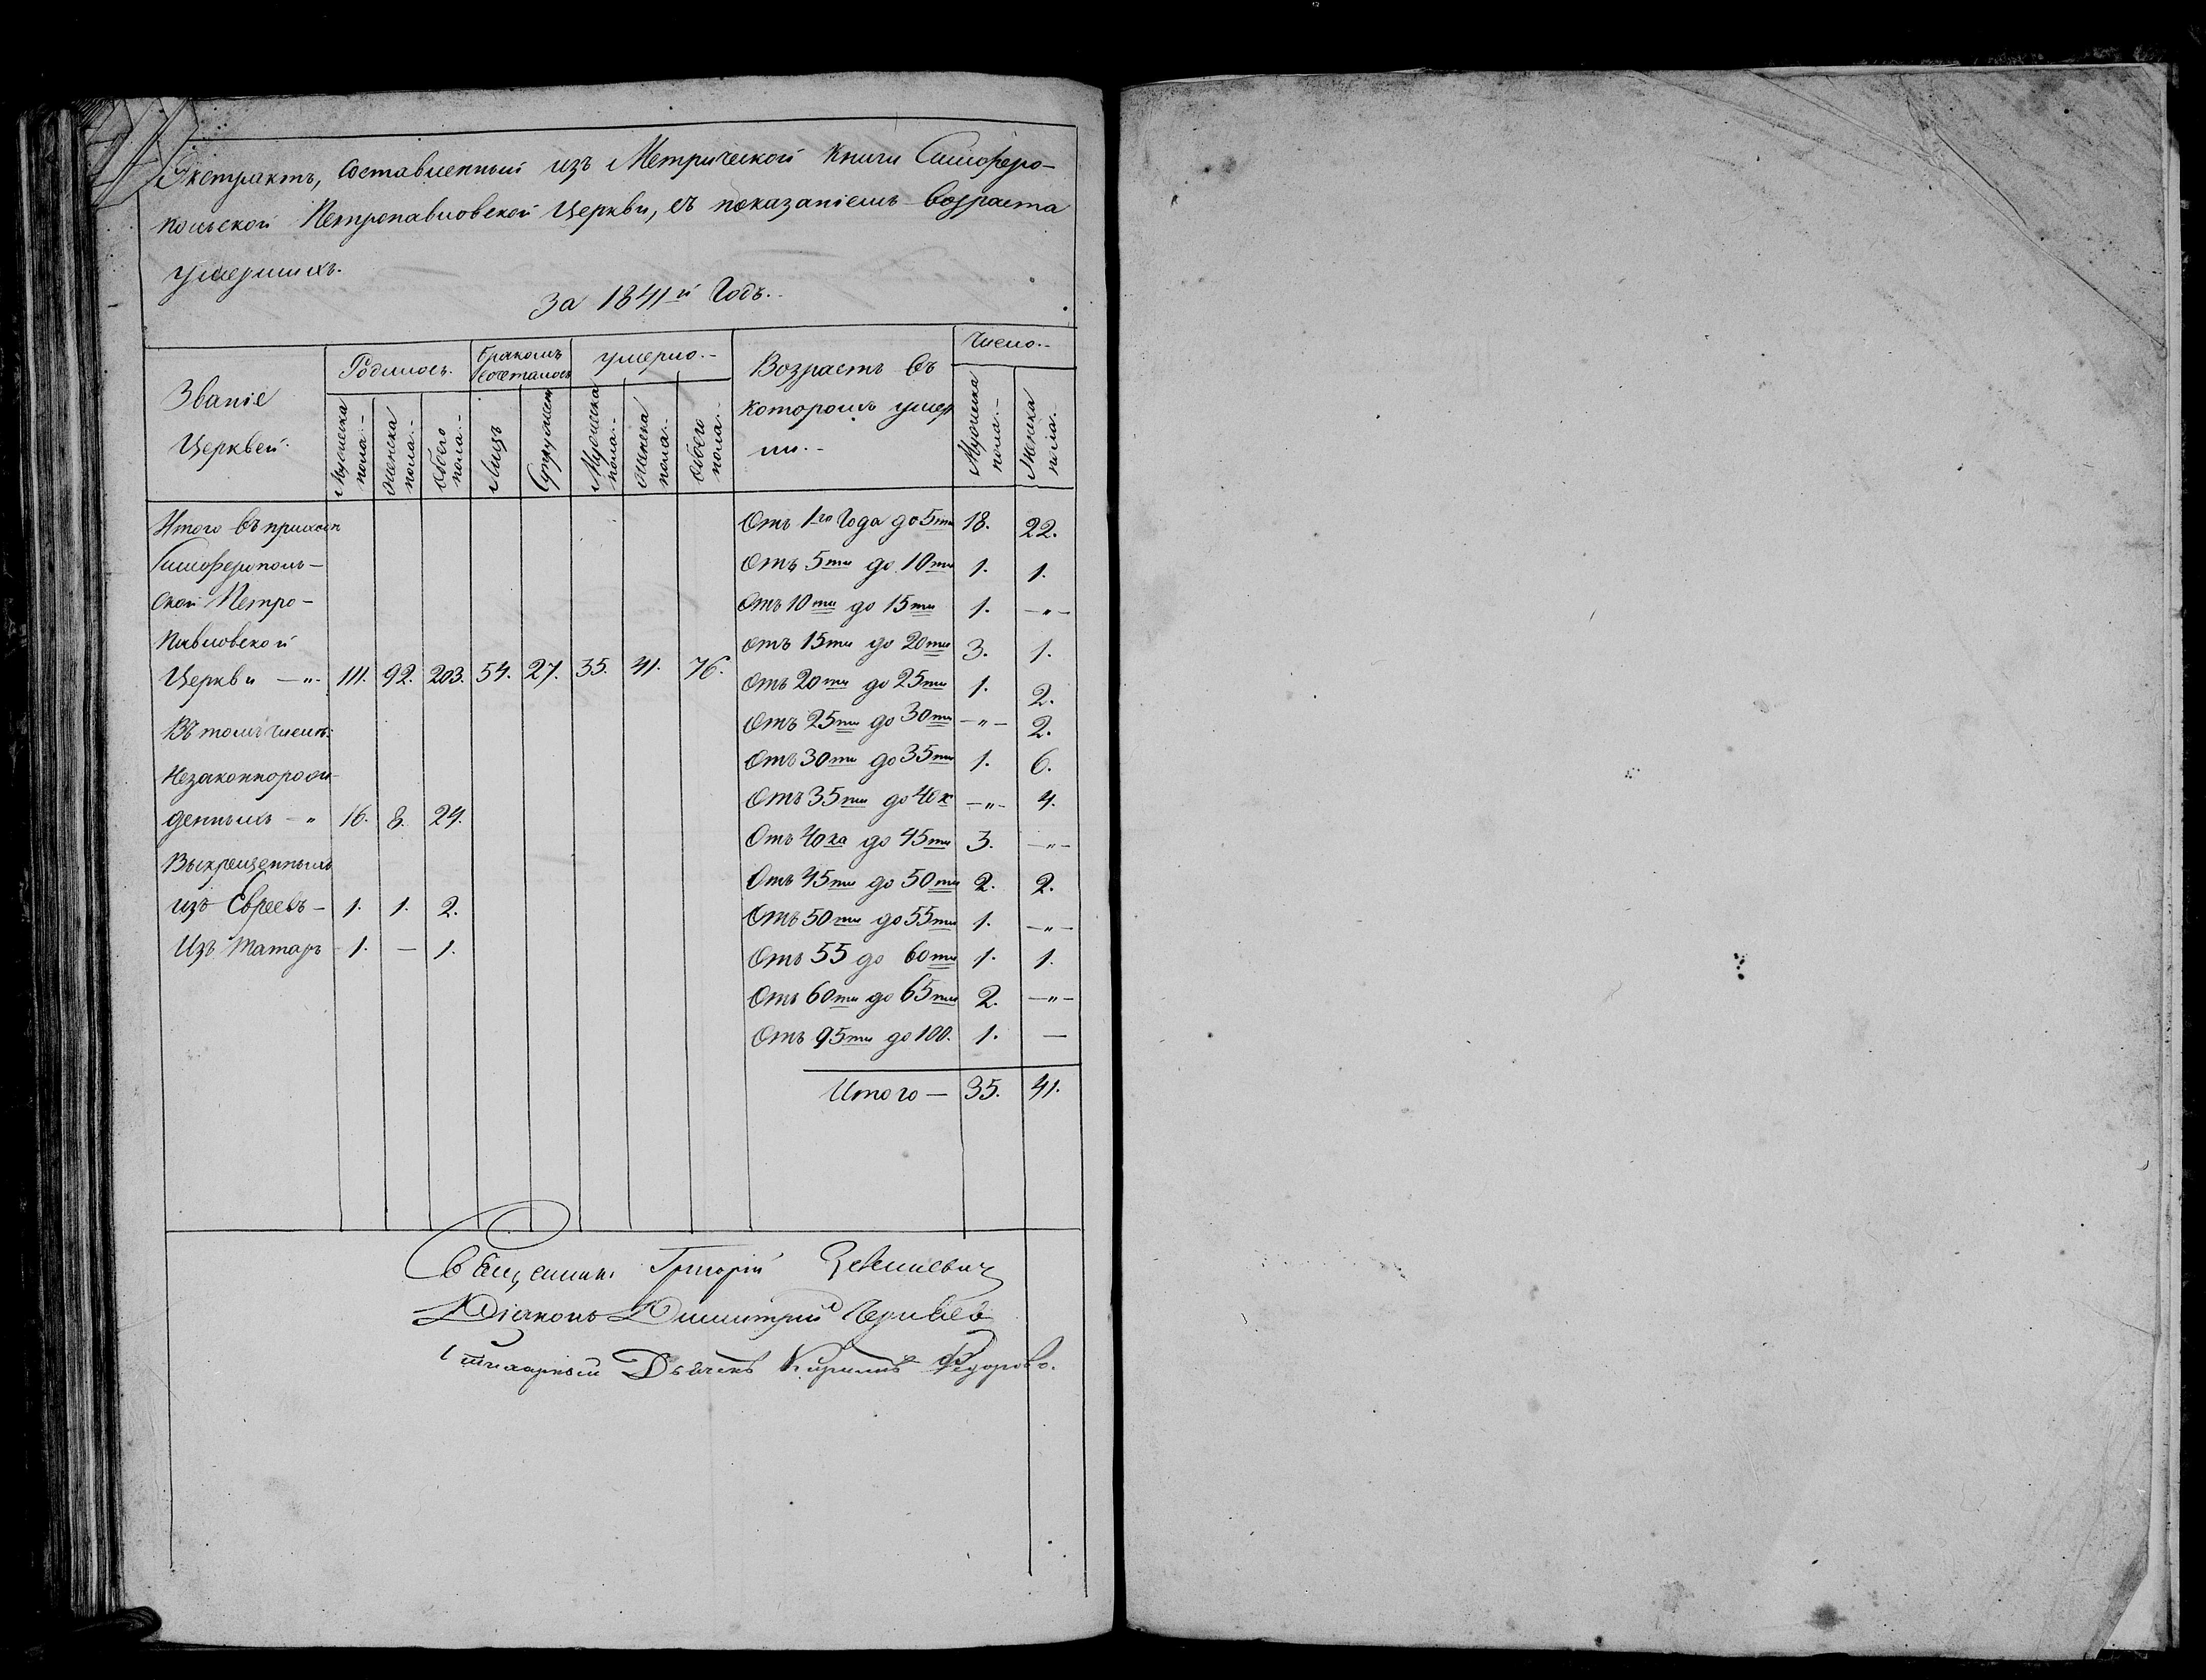 Экстрактъ, составленный изъ Метрической Книги Симферо-
польской Петропавловской Церкви, съ показаніемъ возраста
умершихъ.
За 1841й Годъ.
Званіе Церквей.
Родилось.
Мужеска пола.
Женска пола.
Обоего пола.
Бракомъ сочеталось
Лицъ
Супружест
Умерло.
Мужеска пола.
Женска пола.
Обоего пола.
Возрастъ въ
которомъ умер
ли.
Число.
Мужеска пола.
Женска пола.
Итого въ приход
Симферополь-
ской Петро-
Павловской
Церкви — „ 111. 92. 203. 54. 27. 35. 41. 76.
Въ томъ числѣ:
Незаконнорож-
денныхъ — „ 16. 8. 24.
Выкрещенныхъ
изъ Евреевъ — 1. 1. 2.
Изъ Татаръ — 1. — 1.
Отъ 1го Года до 5ти 18. 22.
Отъ 5ти до 10ти 1. 1.
Отъ 10ти до 15ти 1. — „ —
Отъ 15ти до 20ти 3. 1.
Отъ 20ти до 25ти 1. 2.
Отъ 25ти до 30ти — „ — 2.
Отъ 30ти до 35ти 1. 6.
Отъ 35ти до 40к — „ — 4.
Отъ 40ка до 45ти 3. — „ —
Отъ 45ти до 50ти 2. 2.
Отъ 50ти до 55ти 1. — „ —
Отъ 55 до 60ти 1. 1.
Отъ 60ти до 65ти 2. — „ —
Отъ 95ти до 100. 1. —
Итого — 35. 41.
Священник Григорій
Діаконъ Димитрій
Стихарный Дьячекъ Кирилъ Федоровъ.